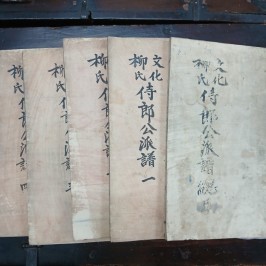 文化
柳氏侍郎公派譜
文化
柳氏侍郎公派譜一
柳氏侍郎公派
柳氏侍郎公派譜三
柳氏侍郎公派譜四